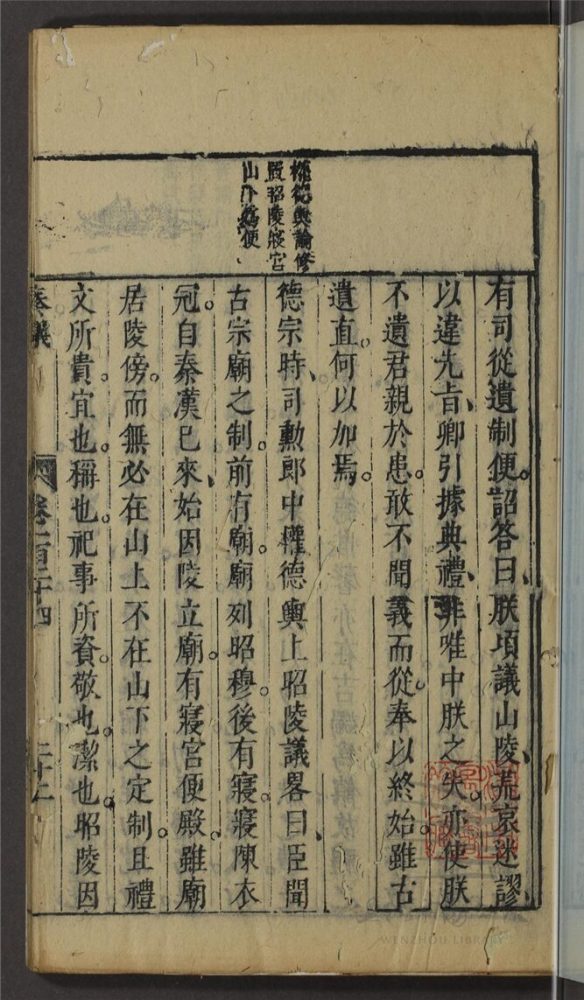 權德輿論修
置昭陵寢宮
山下爲便
有司從遺制便詔答曰朕頃議山陵荒哀迷謬
以違先旨卿引據典禮非唯中朕之失亦使朕
不遺君親於患敢不聞義而從奉以終始雖古
遺直何以加焉
德宗時司勳郎中權德輿上昭陵議畧曰臣聞
古宗廟之制前有廟廟列昭穆後有寢寢陳衣
冠自秦漢已來始因陵立廟有寢宮便殿雖廟
居陵傍而無必在山上不在山下之定制且禮
文所貴宜也稱也祀事所資敬也潔也昭陵因
奏議
卷二百二十四
二十二
WENZHOU LIBRARY